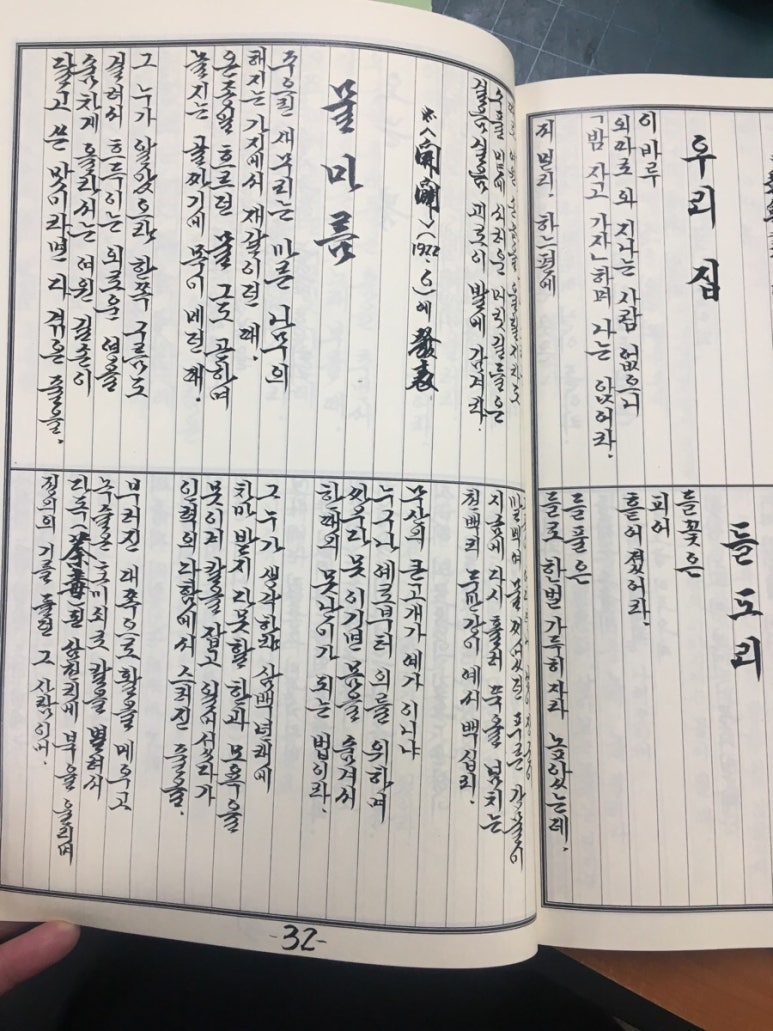 우리 집
이바루
외따로 와 지나는 사람 없으니
「밤 자고 가자」하며 나는 앉어라.
저 멀리, 하느편에
들 도리
들꽃은
피어
흩어졌어라.
들풀은
들로 한벌 가득히 자라 높았는데,
수풀 밑에 서러운 머릿길들은
걸음걸음 괴로이 발에 감겨라.
※<開闢>(1922. 6)에 發表
물 마 름
주으린 새무리는 마른 나무의
해지는 가지에서 재갈이던 때.
온종일 흐르던 물 그도 곤하여
놀지는 골짜기에 목이 메던 때.
그 누가 알았으랴 한쪽 구름도
걸려서 흐느끼는 외로운 영을
숨차게 올라서는 여윈 길손이
달고 쓴 맛이라면 다 겪은 줄을.
말 먹여 물 끼얹던 푸른 강물이
지금에 다시 흘러 둑을 넘치는
천백리 두만강이 예서 백십리.
무산의 큰고개가 예가 아니냐
누구나 예로부터 의를 위하여
싸우다 못 이기면 몸을 숨겨서
한때의 못난이가 되는 법이라.
그 누가 생각하랴 삼백년래에
차마 받지 다못할 한과 모욕을
못이겨 칼을 잡고 일어섰다가
인력의 다함에서 스러진 줄을.
부러진 대쪽으로 활을 메우고
녹슬은 호미쇠로 칼을 별러서
다독(荼毒)된 삼천리에 북을 울리며
정의의 기를 들던 그 사람이여.
-32-